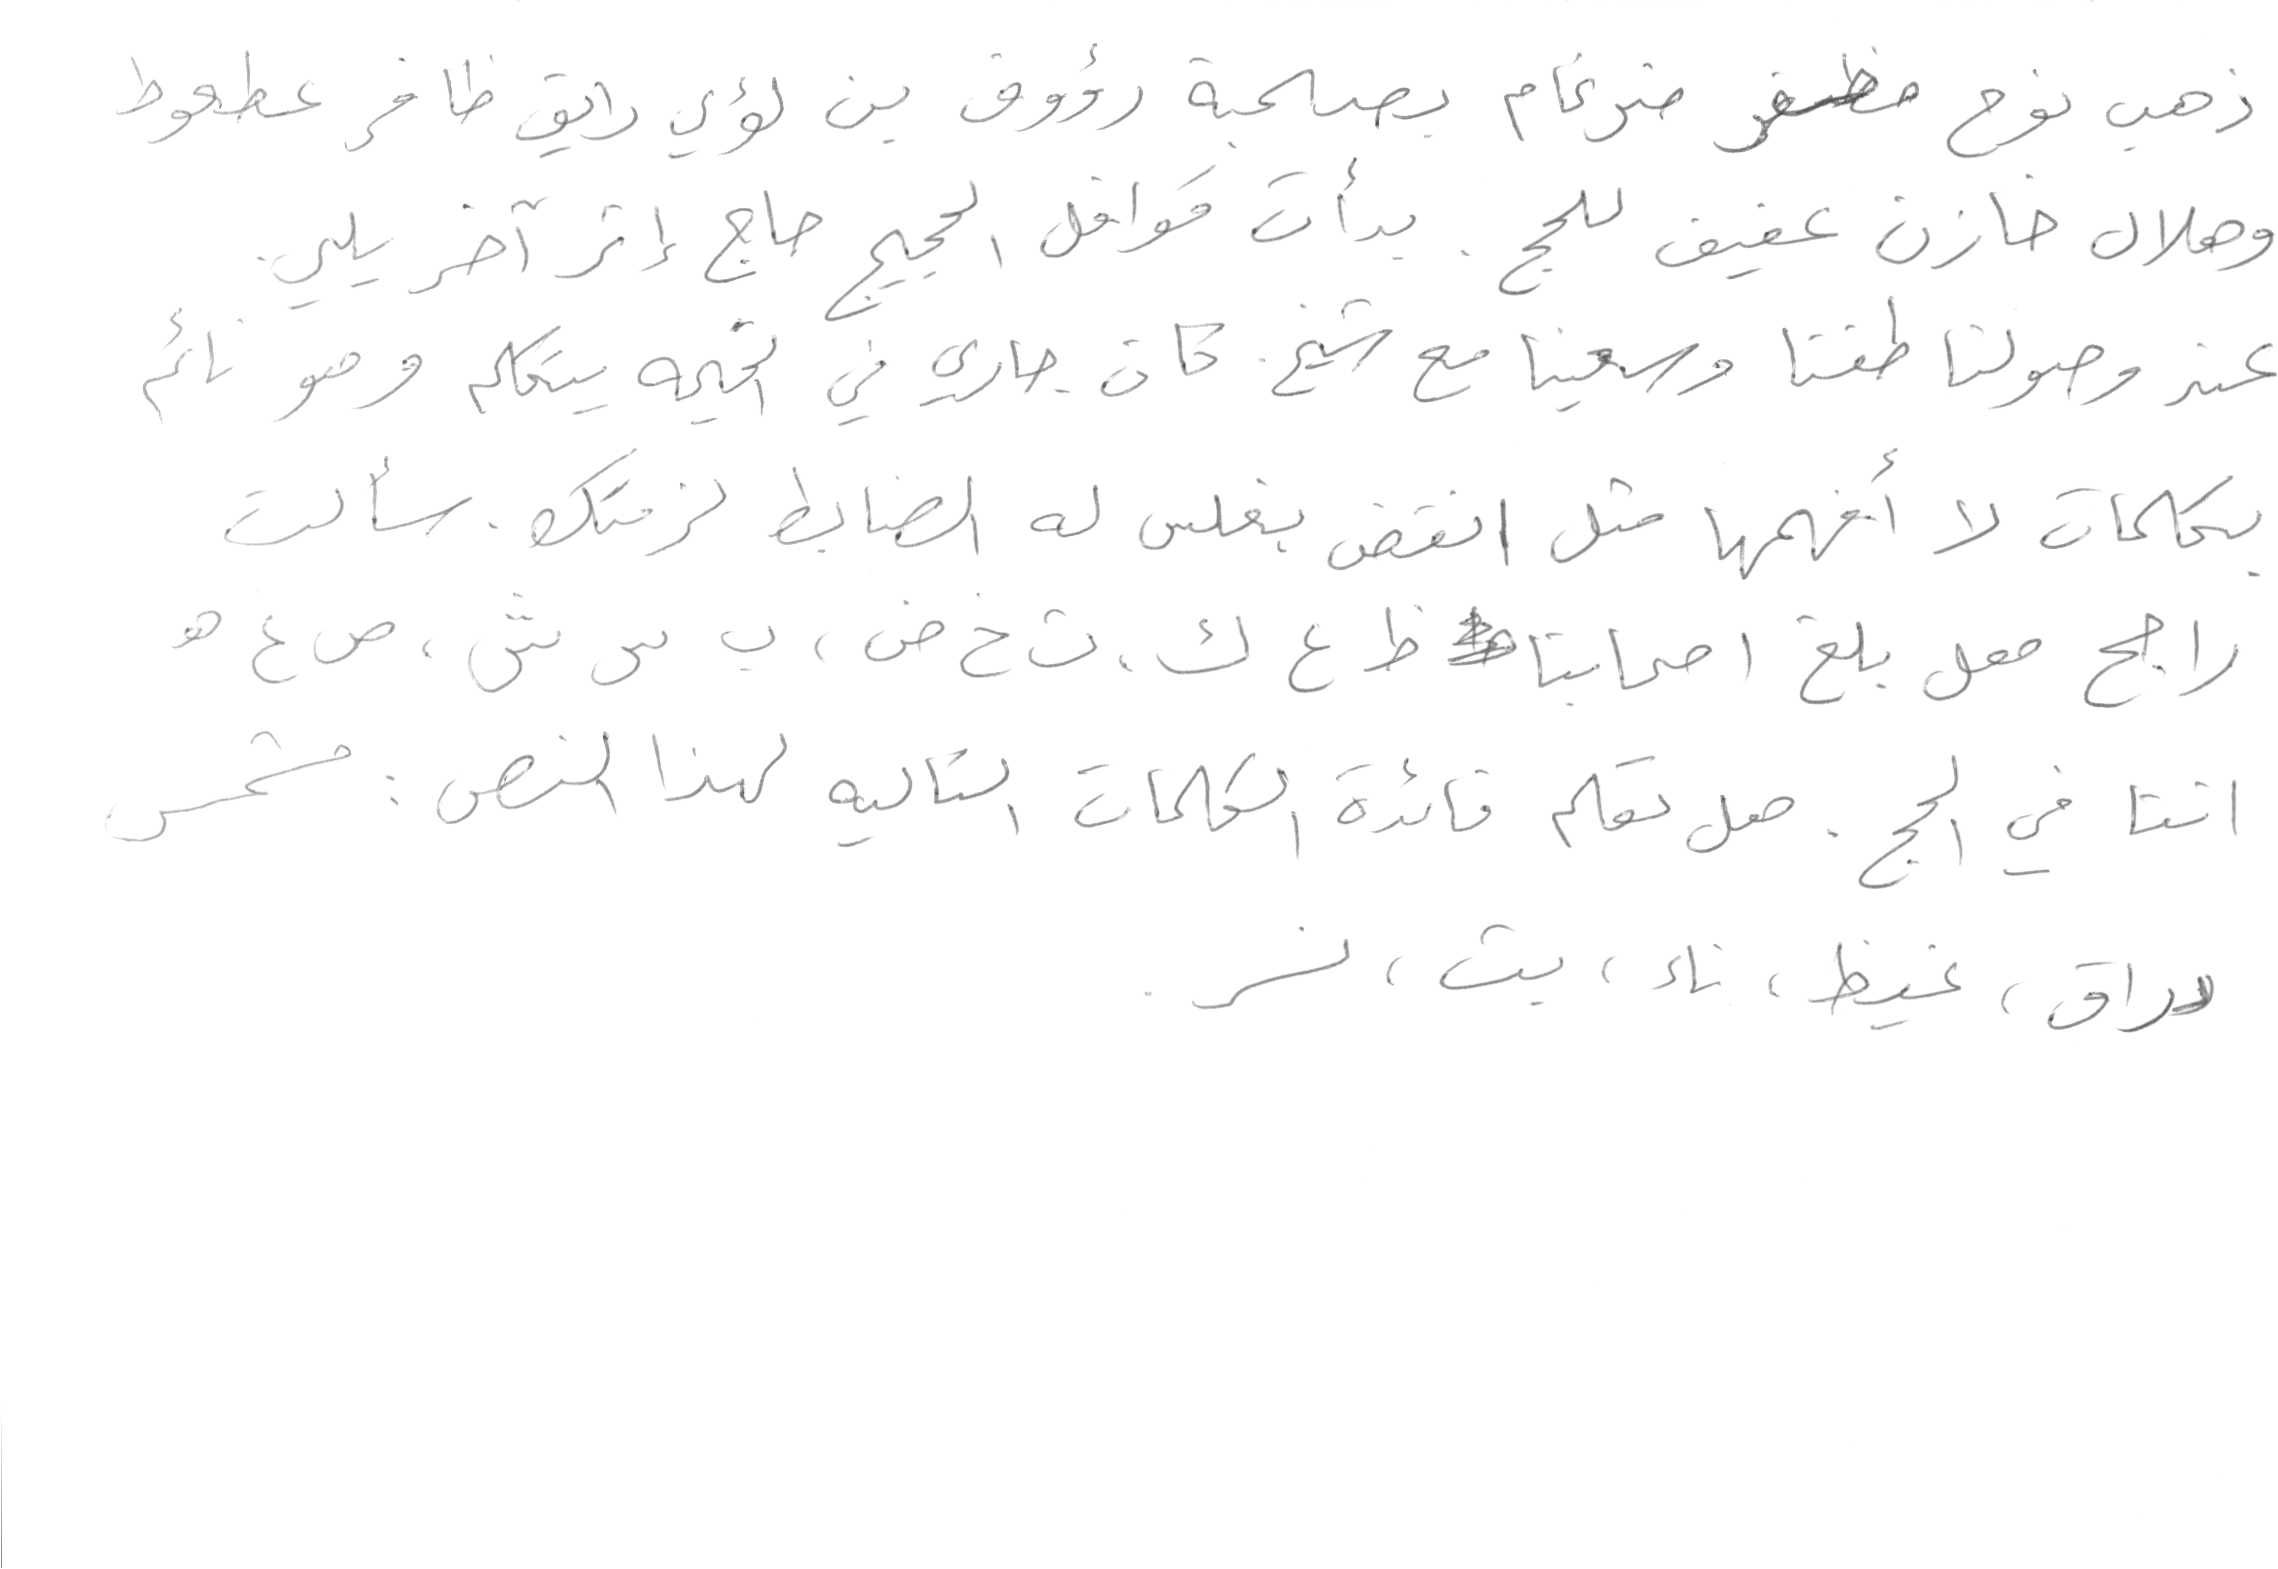 ذهب نوح مظفر ضرغام بصحبة رؤوف بن لؤي رايق ظافر عطعوط
وهلال خازن عفيف للحج . بدأت قوافل الحجيج حاج إثر آخر يلبي .
عند وصولنا طفنا وسعينا مع شيخ . كان جاري في الخيمه يتكلم وهو نائم
بكلمات لا أفهمها مثل انقض بغلس له الضابط لزمتك . سألت
راجح هل بلغ اصحابنا ظ ع ك ، ث خ ض ، ب س ش ، ص غ ه
اننا في الحج . هل تعلم فائدة الكلمات التاليه لهذا النص : شمس
دراق ، غيظ ، ناء ، يث ، نسر .